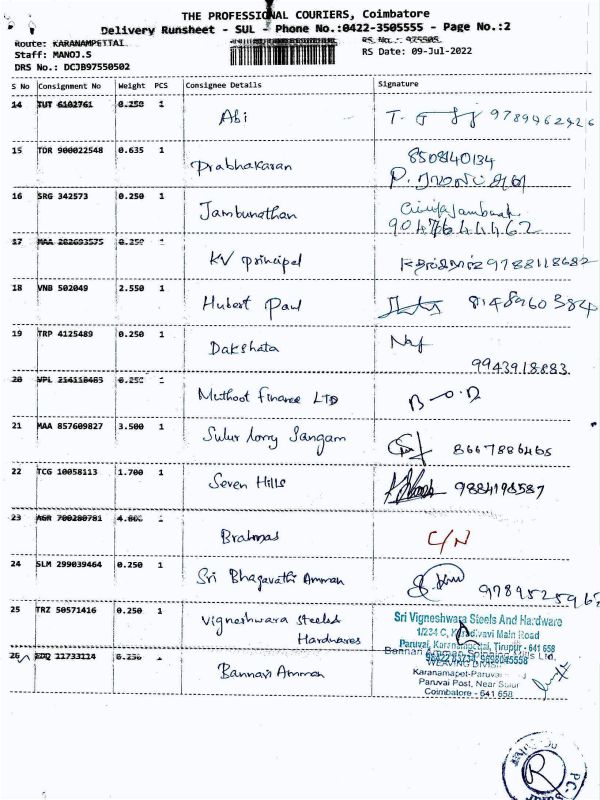 THE PROFESSIONAL COURIERS, Coimbatore
Delivery Runsheet - SUL - Phone No.:0422-3505555 - Page No.:2
Route: KARANAMPETTAI
Staff: MANOJ.S RS Date: 09-Jul-2022
DRS No.: DCJB97550502
S No Consignment No Weight PCS Consignee Details Signature
14 TUT 6102761 0.250 1 Abi 9789462426
15 TDR 900022548 0.635 1 Prabhakaran 8508140134
16 SRG 342573 0.250 1 Jambunathan 9047644462
17 MAA 202693575 0.250 1 KV principal 9788118682
18 VNB 502049 2.550 1 Hubert Paul 8148960384
19 TRP 4125489 0.250 1 Dakshata 9943918883
20 VPL 0.250 1 Muthoot Finance LTD
21 MAA 857609827 3.500 1 Sulur lorry Sangam 8667886465
22 TCG 10058113 1.700 1 Seven Hills 9884198587
23 AGR 700280781 4.800 1 Brahmas C/N
24 SLM 299039464 0.250 1 Sri Bhagavathi Amman
25 TRZ 50571416 0.250 1 Vigneshwara Steeles
Hardwares
Sri Vigneshwara Steels And Hardware
Main Road
Paruvai, Karanampettai, Tirupur - 641 658
26 11733114 0.250 1 Bannari Amman
Bannari Amman Spinning Mills Ltd.,
WEAVING DIVISION
Karanamapet-Paruvai
Paruvai Post, Near Sulur
Coimbatore - 641 658
R